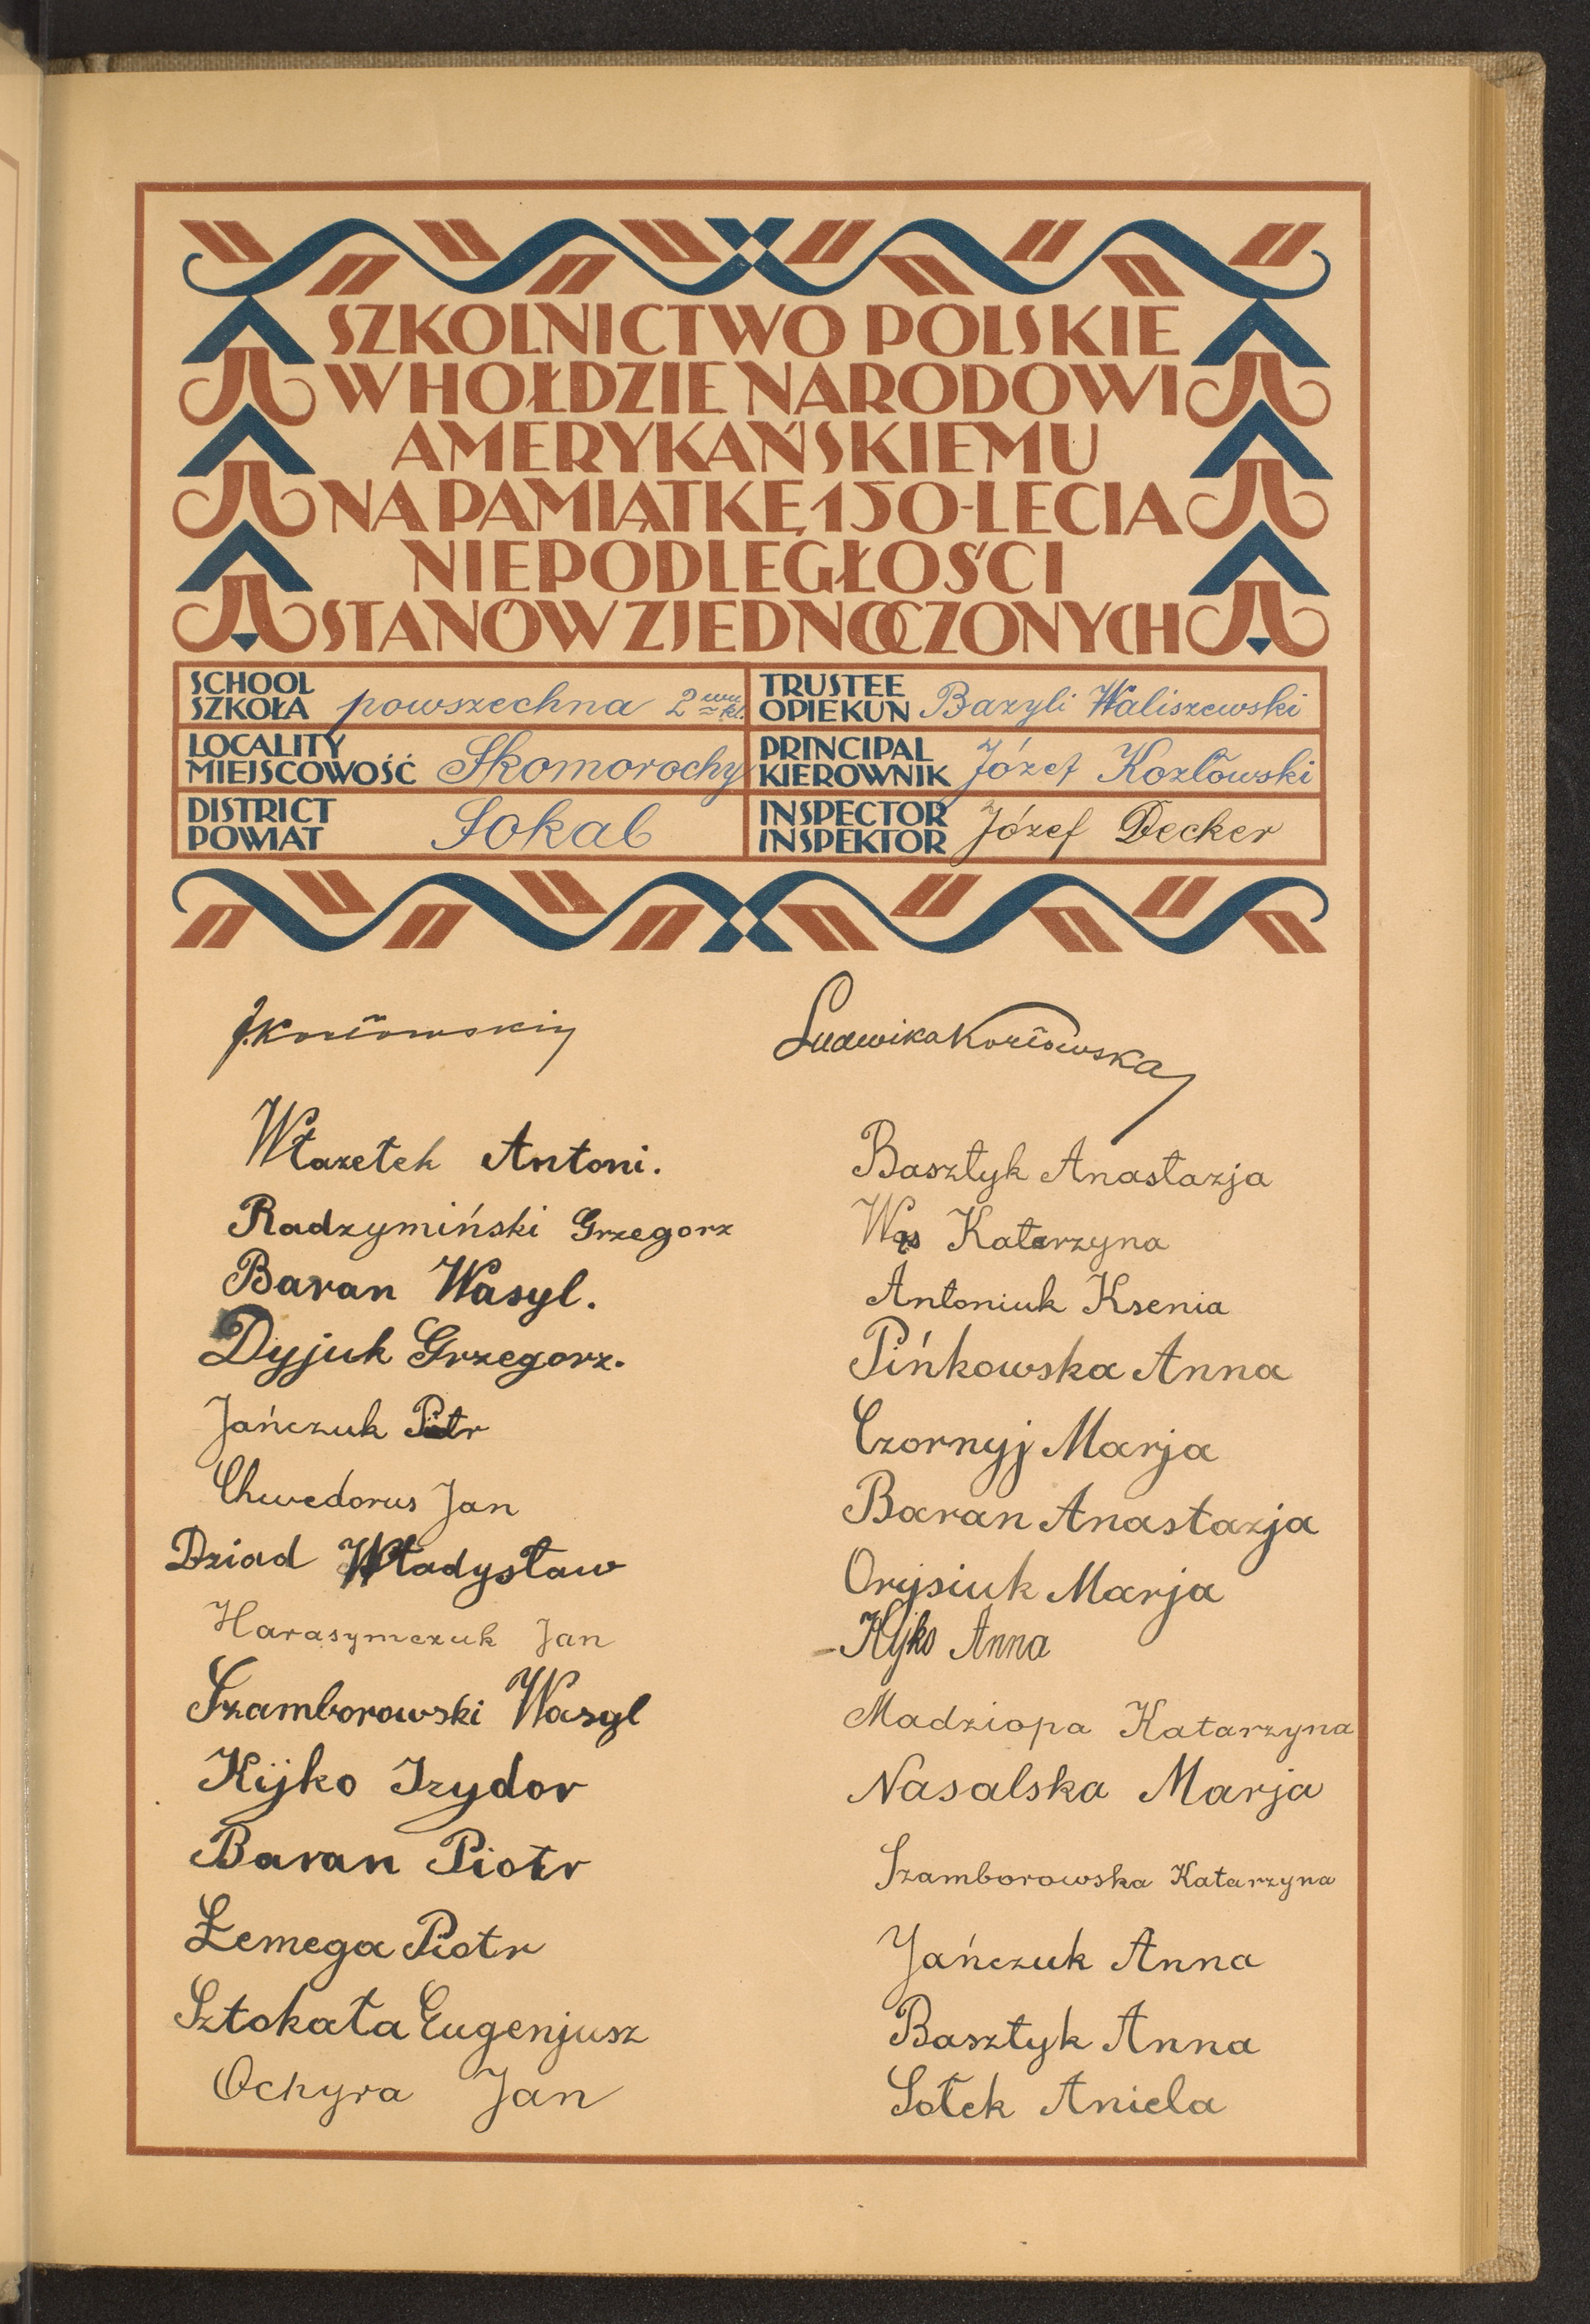 SZKOLNICTWO POLSKIE
W HOŁDZIE NARODOWI
AMERYKAŃSKIEMU
NA PAMIĄTKĘ 150-LECIA
NIEPODLEGŁOŚCI
STANÓW ZJEDNOCZONYCH
SCHOOL
SZKOŁA powszechna 2 kl.
TRUSTEE
OPIEKUN Bazyli Waliszewski
LOCALITY
MIEJSCOWOŚĆ Skomorochy
PRINCIPAL
KIEROWNIK Józef Kozłowski
DISTRICT
POWIAT Sokal
INSPECTOR
INSPEKTOR Józef Decker
J. Kozłowski
Ludwika Kozłowska
Włazełek Antoni.
Radzymiński Grzegorz
Baran Wasyl.
Dyjuk Grzegorz.
Jańczuk Piotr
Chwedorus Jan
Dziad Władysław
Harasymczuk Jan
Szamborowski Wasyl
Kijko Izydor
Baran Piotr
Łemega Piotr
Sztokała Eugenjusz
Ochyra Jan
Basztyk Anastazja
Wąs Katarzyna
Antoniuk Ksenia
Pińkowska Anna
Czornyj Marja
Baran Anastazja
Orysiuk Marja
Kijko Anna
Madziopa Katarzyna
Nasalska Marja
Szamborowska Katarzyna
Jańczuk Anna
Basztyk Anna
Sołek Aniela